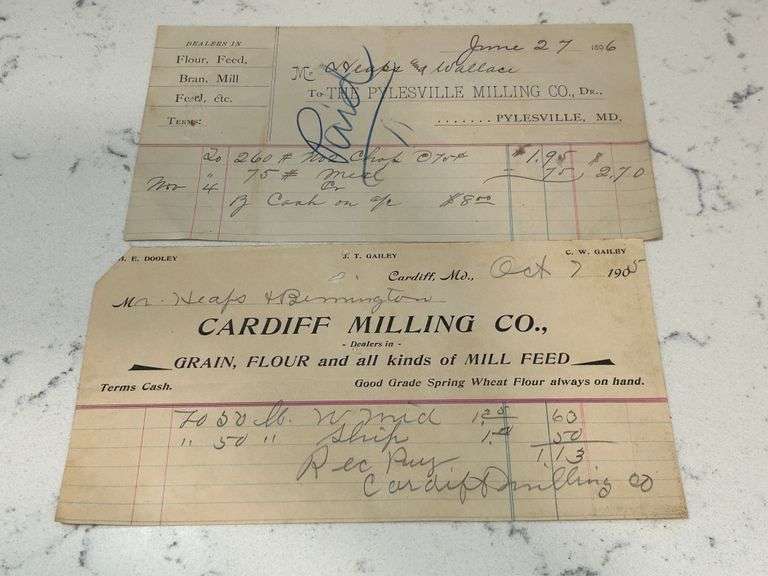 DEALERS IN
Flour, Feed,
Bran, Mill
Feed, etc.
TERMS:
June 27 1896
M Heaps & Wallace
To THE PYLESVILLE MILLING CO., DR.,
....... PYLESVILLE, MD.
Paid
To 260 # Chop @ 75¢ $1.95 $
" 75 # Meal 75 2.70
Nov 4 Cr
By Cash on a/c $8.00
E. DOOLEY
J. T. GAILEY
C. W. GAILEY
Cardiff, Md., Oct 7 1905
Mr. Heaps & Bennington
CARDIFF MILLING CO.,
- Dealers in -
GRAIN, FLOUR and all kinds of MILL FEED
Terms Cash.
Good Grade Spring Wheat Flour always on hand.
To 50 lb. W Mid 1.25 63
" 50 " Ship 50
1.13
Rec Pay
Cardiff Milling Co